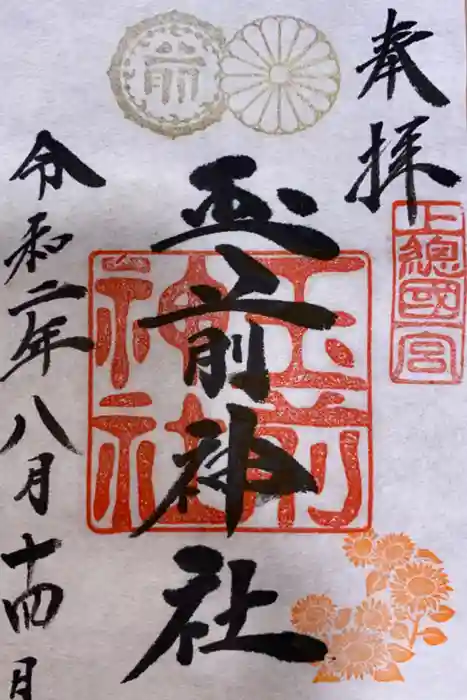 奉拝
上總國一宮
玉前神社
玉前
神社
令和二年八月十四日
前